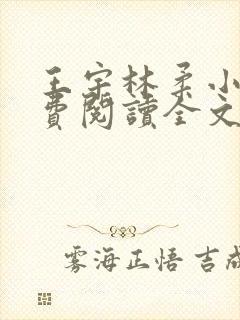 王宇林柔小
費閱讀全文
雾海正悟 吉成